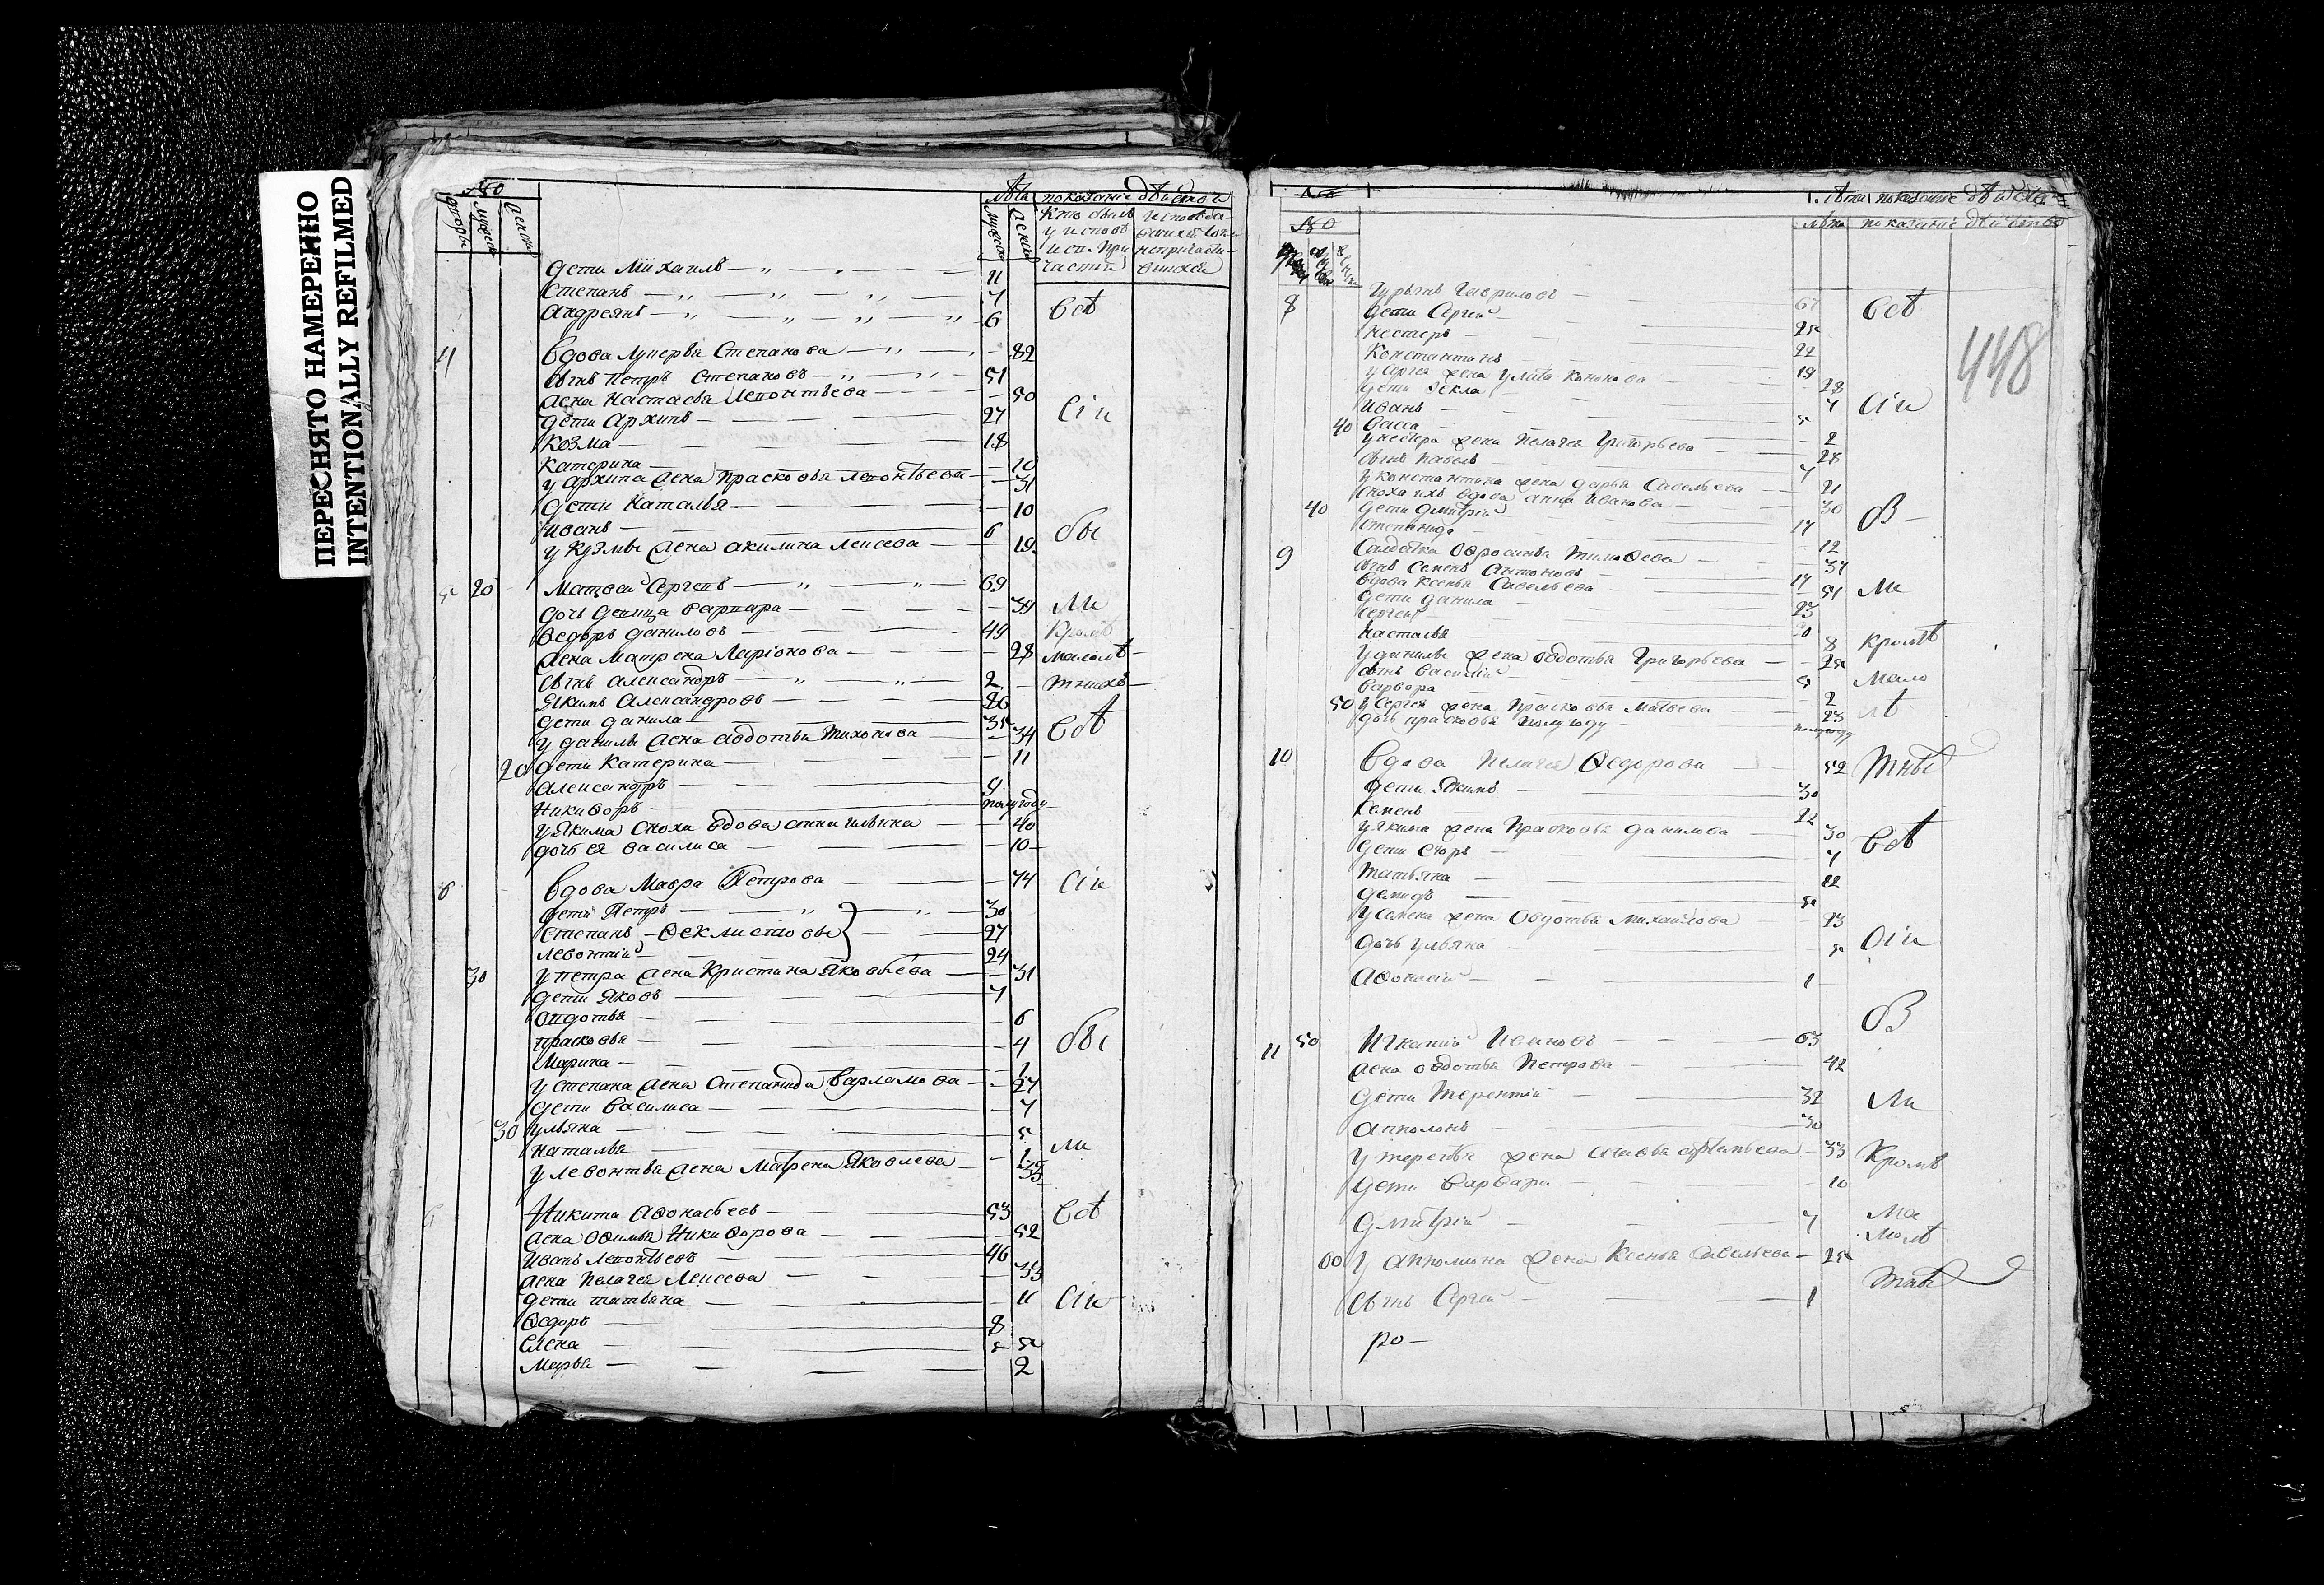 ПЕРЕСНЯТО НАМЕРЕННО
INTENTIONALLY REFILMED
№о лѣта показанїе дѣйство
дворы мужеск женск мужеск женск
Кто былъ
у исповѣ
и с. при
части
дети Михаилъ 11
Степанъ 7
Андреянъ 6 всѣ
4 вдова Лукерья Степанова 82
сынъ Петръ Степановъ 51
жена Настасья Леонтьева 50
дети Архипъ 27 сiи
Козма 18
Катерина 10
у Архипа жена Прасковья Леонтьева 31
дети Наталья 10
Иванъ 6 бы
у Кузмы жена Акилина Леисева 19
5 20 Матвей Сергеевъ 69
дочь девица Варвара 39 ли
Ѳедоръ Даниловъ 49 кромѣ
жена Матрена Ларiонова 28 малолѣ
сынъ Александръ 2 тныхъ
Якимъ Александровъ 86
дети Данила 35
у Данилы жена Авдотья Тихонова 34 всѣ
20 дети Катерина 11
Александръ 9
Никиѳоръ полугоду
у Якима сноха вдова Анна Ильина 40
дочь ея Василиса 10
6 вдова Мавра Петрова 74 сiи
дети Петръ 30
Степанъ Ѳеклистовы 27
Левонтий 24
30 у Петра жена Кристина Яковлева 31
дети Яковъ 7
Овдотья 6
Прасковья 4 бы
Марина 1
у Степана жена Степанида Варламова 27
дети Василиса 7
30 Ульяна 5
Наталья 1 ли
у Левонтья жена Матрена Яковлева
Никита Аѳонасьевъ 53 всѣ
жена Оѳимья Никиѳорова 52
Иванъ Леонтьевъ 46
жена Пелагея Леисева 33
дети Татьяна 11 сiи
Ѳедоръ 8
Елена 5
Марья 2
№о лѣта показанiе дѣйство
№о лѣта показанiе дѣйство
448
8 Гурьянъ Гавриловъ 67 всѣ
дети Сргей 25
Нестеръ 22
Константинъ 19
у Сергея жена Улита Кононова 28
дети Ѳекла 7 сiи
Иванъ 5
40 Васса 2
у Нестера жена Пелагея Григорьева 28
сынъ Павелъ 7
у Константина жена Дарья Савельева 21
сноха ихъ вдова Анна Иванова 30
40 дети Дмитрий 17 в
Степанида 12
9 Салдатка Оѳросинья Тимоѳеева 37
сынъ Семенъ Антоновъ 17
вдова Ксенья Савельева 51 ли
дети Данила 23
Сергей
Настасья 8 кромѣ
у Данилы жена Овдотья Григорьева 25
сынъ Василий 5 мало
Варвара 2
50 у Сергея жена Прасковья Матвеева 23 лѣ
дочь Прасковья полугоду полугоду
10 вдова Пелагея Ѳедорова 52 тны
дети Якимъ 30
Семенъ 22
у Якима жена Прасковья Данилова 30 всѣ
дети Егоръ 7
Татьяна 12
Демидъ 5
у Семена жена Овдотья Михайлова 23
дочь Ульяна 5 сiи
Аѳонасiй 1
в
11 50 Игнатий Ивановъ 63
жена Овдотья Петрова 42
дети Терентий 32 ли
Апполонъ 30
у Терентья жена 33 кромѣ
дети Варвара 10
Дмитрiй 7 ма
молѣ
у Апполона жена Ксенья Савельева 25
тны
сынъ Сргей 1
ро